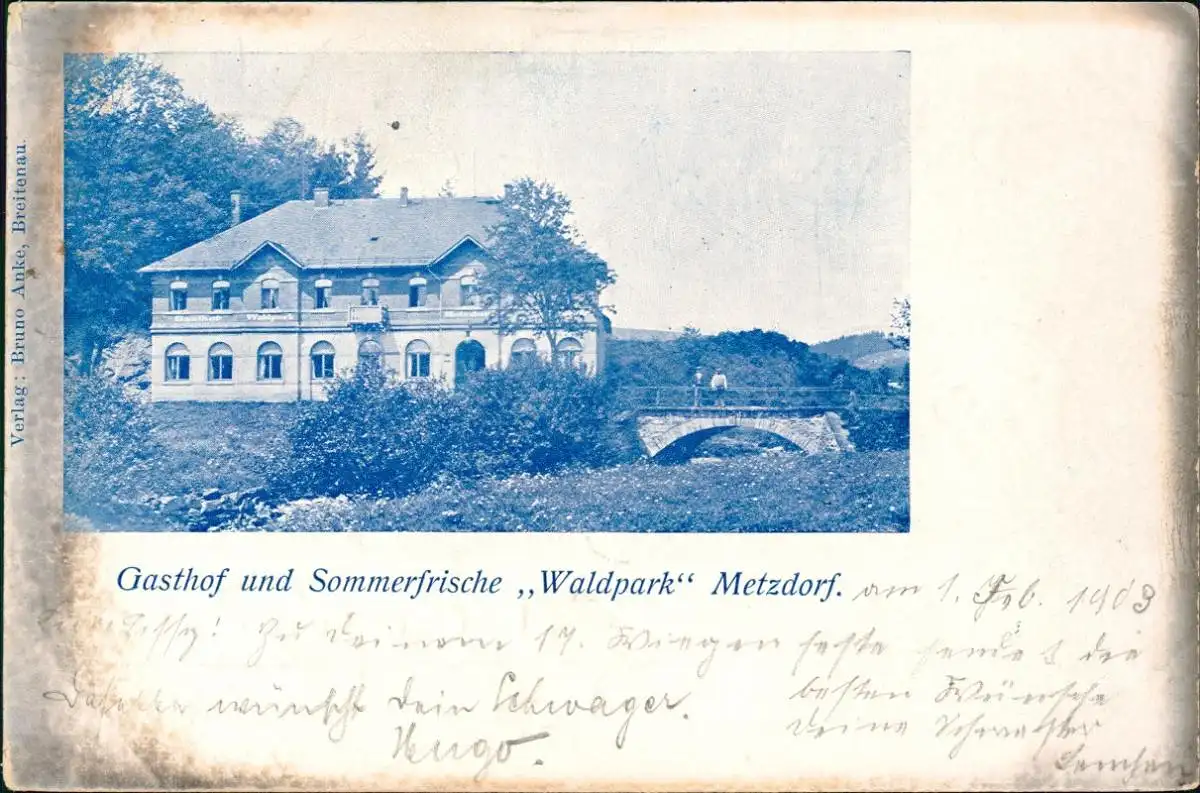 Verlag: Bruno Anke, Breitenau.
Waldpark
Gasthof und Sommerfrische „Waldpark“ Metzdorf.
am 1. Feb. 1903
! Zu Deinem 17. Wiegenfeste sendet die
besten Wünsche
Deine Schwester
Lenchen
Dasselbe wünscht Dein Schwager.
Hugo.